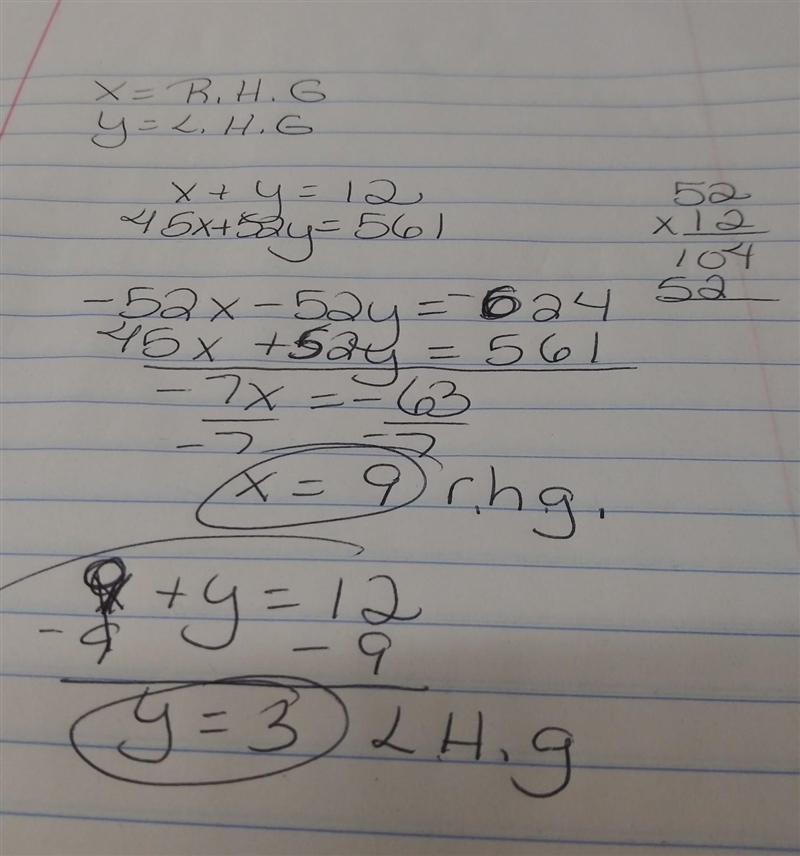 x = R.H.G
y = L.H.G
x + y = 12
45x+52y=561
52
x 12
104
52
-52x - 52y = -624
45x + 52y = 561
-7x = -63
-7 -7
x = 9 r.h.g.
9 + y = 12
- 9 - 9
y = 3 L.H.g